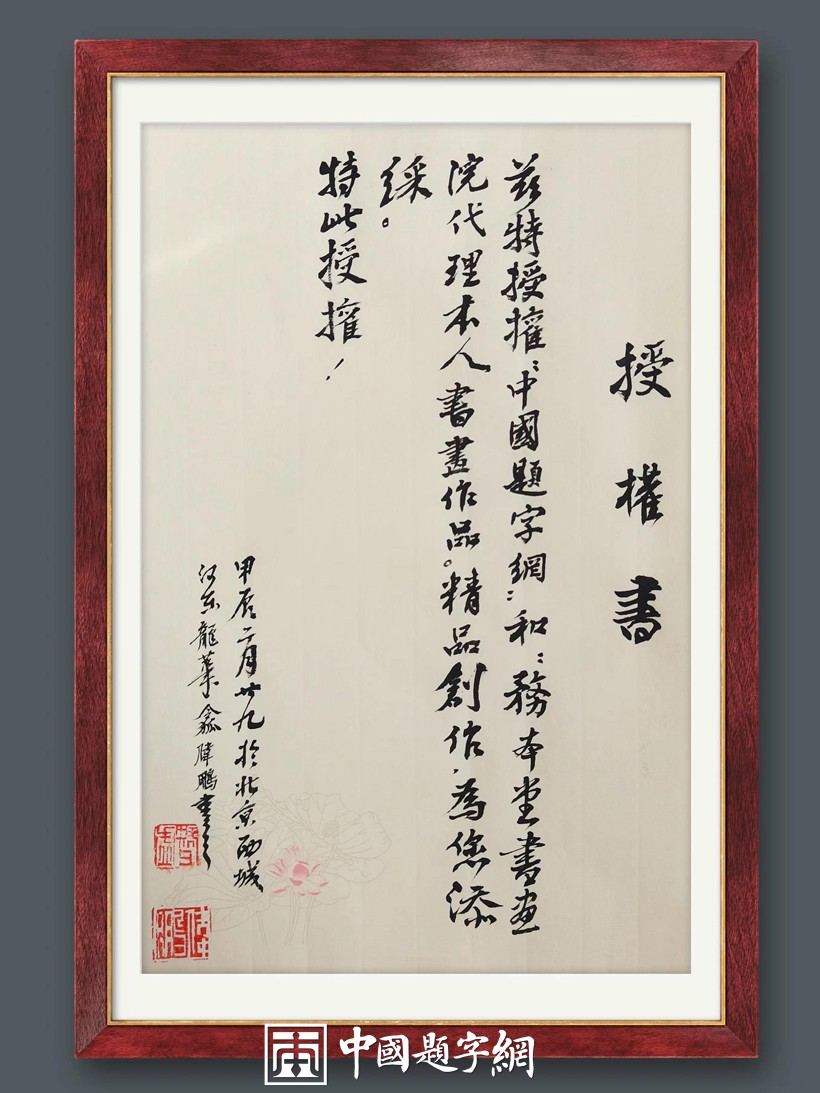 授權書
茲特授權:中國題字網:和:務本堂書画
院代理本人書畫作品。精品創作,為您添
綵。
特此授權!
甲辰二月廿九於北京西城
河东龍葉鑫暐鵬書之
中國題字網